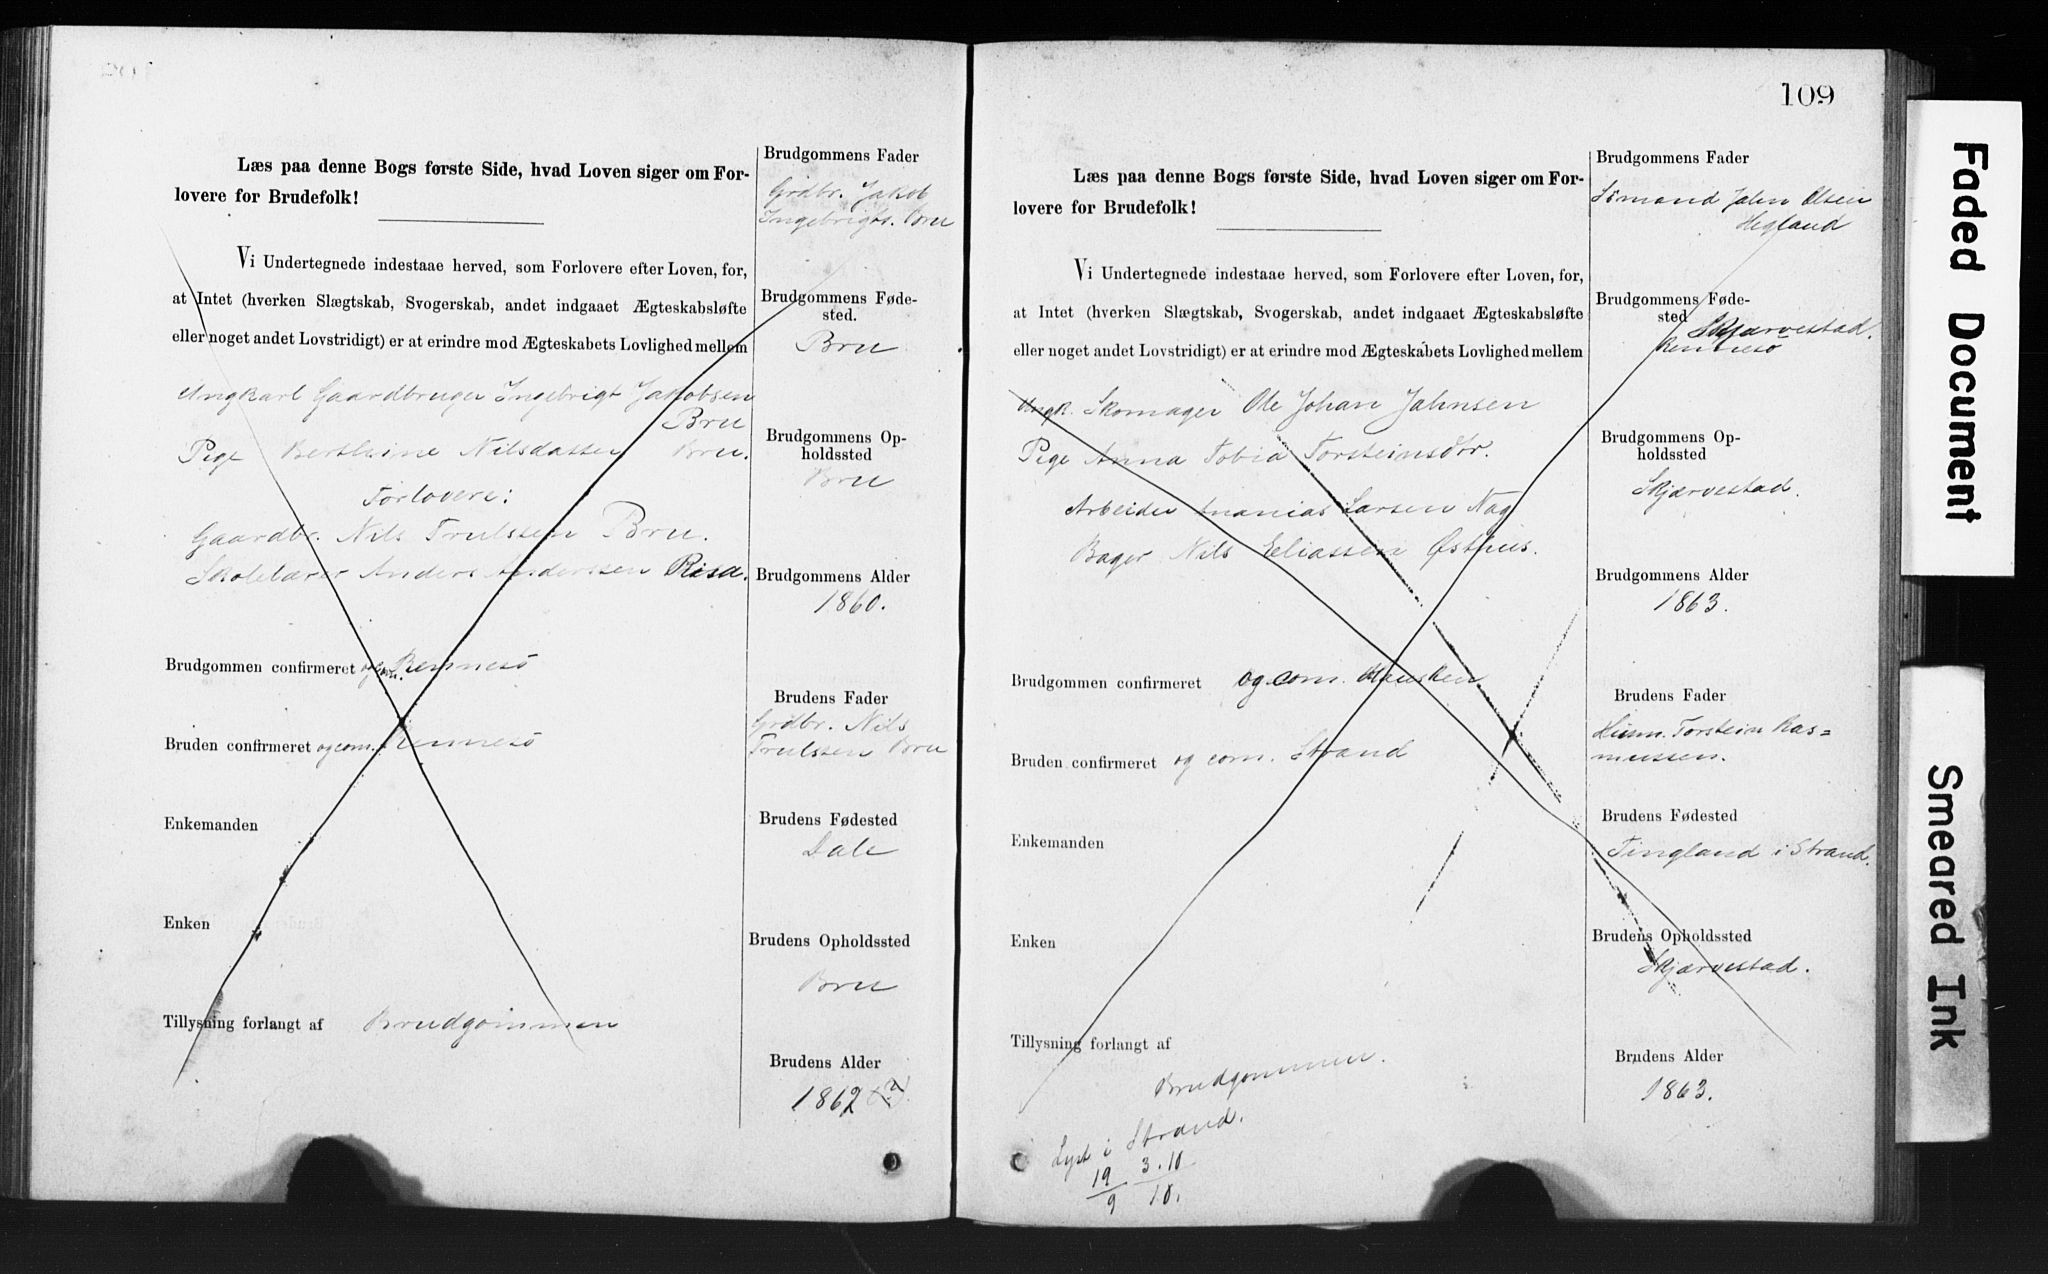 Læs paa denne Bogs første Side, hvad Loven siger om For-
lovere for Brudefolk!
Vi Undertegnede indestaae herved, som Forlovere efter Loven, for,
at Intet (hverken Slægtskab, Svogerskab, andet indgaaet Ægteskabsløfte
eller noget andet Lovstridigt) er at erindre mod Ægteskabets Lovlighed mellem
Ungkarl Gaardbruger Ingebrigt Jakobsen
Bru
Pige Berthine Nilsdatter Bru.
Forlovere:
Gaardbr. Nils Trulssen Bru.
Skolelærer Anders Anderssen Risa.
Brudgommen confirmeret og com. Rennesö
Bruden confirmeret og com. Rennesö
Enkemanden
Enken
Tillysning forlangt af Brudgommen
Brudgommens Fader
Grdbr. Jakob
Ingebrigts. Bru
Brudgommens Føde-
sted.
Bru
Brudgommens Op-
holdssted
Bru
Brudgommens Alder
1860.
Brudens Fader
Grdbr. Nils
Trulssen Bru
Brudens Fødested
Dale
Brudens Opholdssted
Bru
Brudens Alder
1862 (?)
109
Læs paa denne Bogs første Side, hvad Loven siger om For-
lovere for Brudefolk!
Vi Undertegnede indestaae herved, som Forlovere efter Loven, for,
at Intet (hverken Slægtskab, Svogerskab, andet indgaaet Ægteskabsløfte
eller noget andet Lovstridigt) er at erindre mod Ægteskabets Lovlighed mellem
Ungk. Skomager Ole Johan Jahnsen
Pige Anna Tobia Torsteinsdtr.
Arbeider Ananias Larsen Nag
Bager Nils Eliassen Østhus.
Brudgommen confirmeret og com. Hausken
Bruden confirmeret og com. Strand
Enkemanden
Enken
Tillysning forlangt af
Brudgommen.
Lyst i Strand.
19/9 3.10 /10.
Brudgommens Fader
Sömand Jahn Olsen
Hegland
Brudgommens Føde-
sted Skjærvestad.
Rennesö
Brudgommens Op-
holdssted
Skjærvestad.
Brudgommens Alder
1863.
Brudens Fader
Husm. Torstein Ras=
mussen.
Brudens Fødested
Tingland i Strand.
Brudens Opholdssted
Skjærvestad.
Brudens Alder
1863.
Faded Document
Smeared Ink